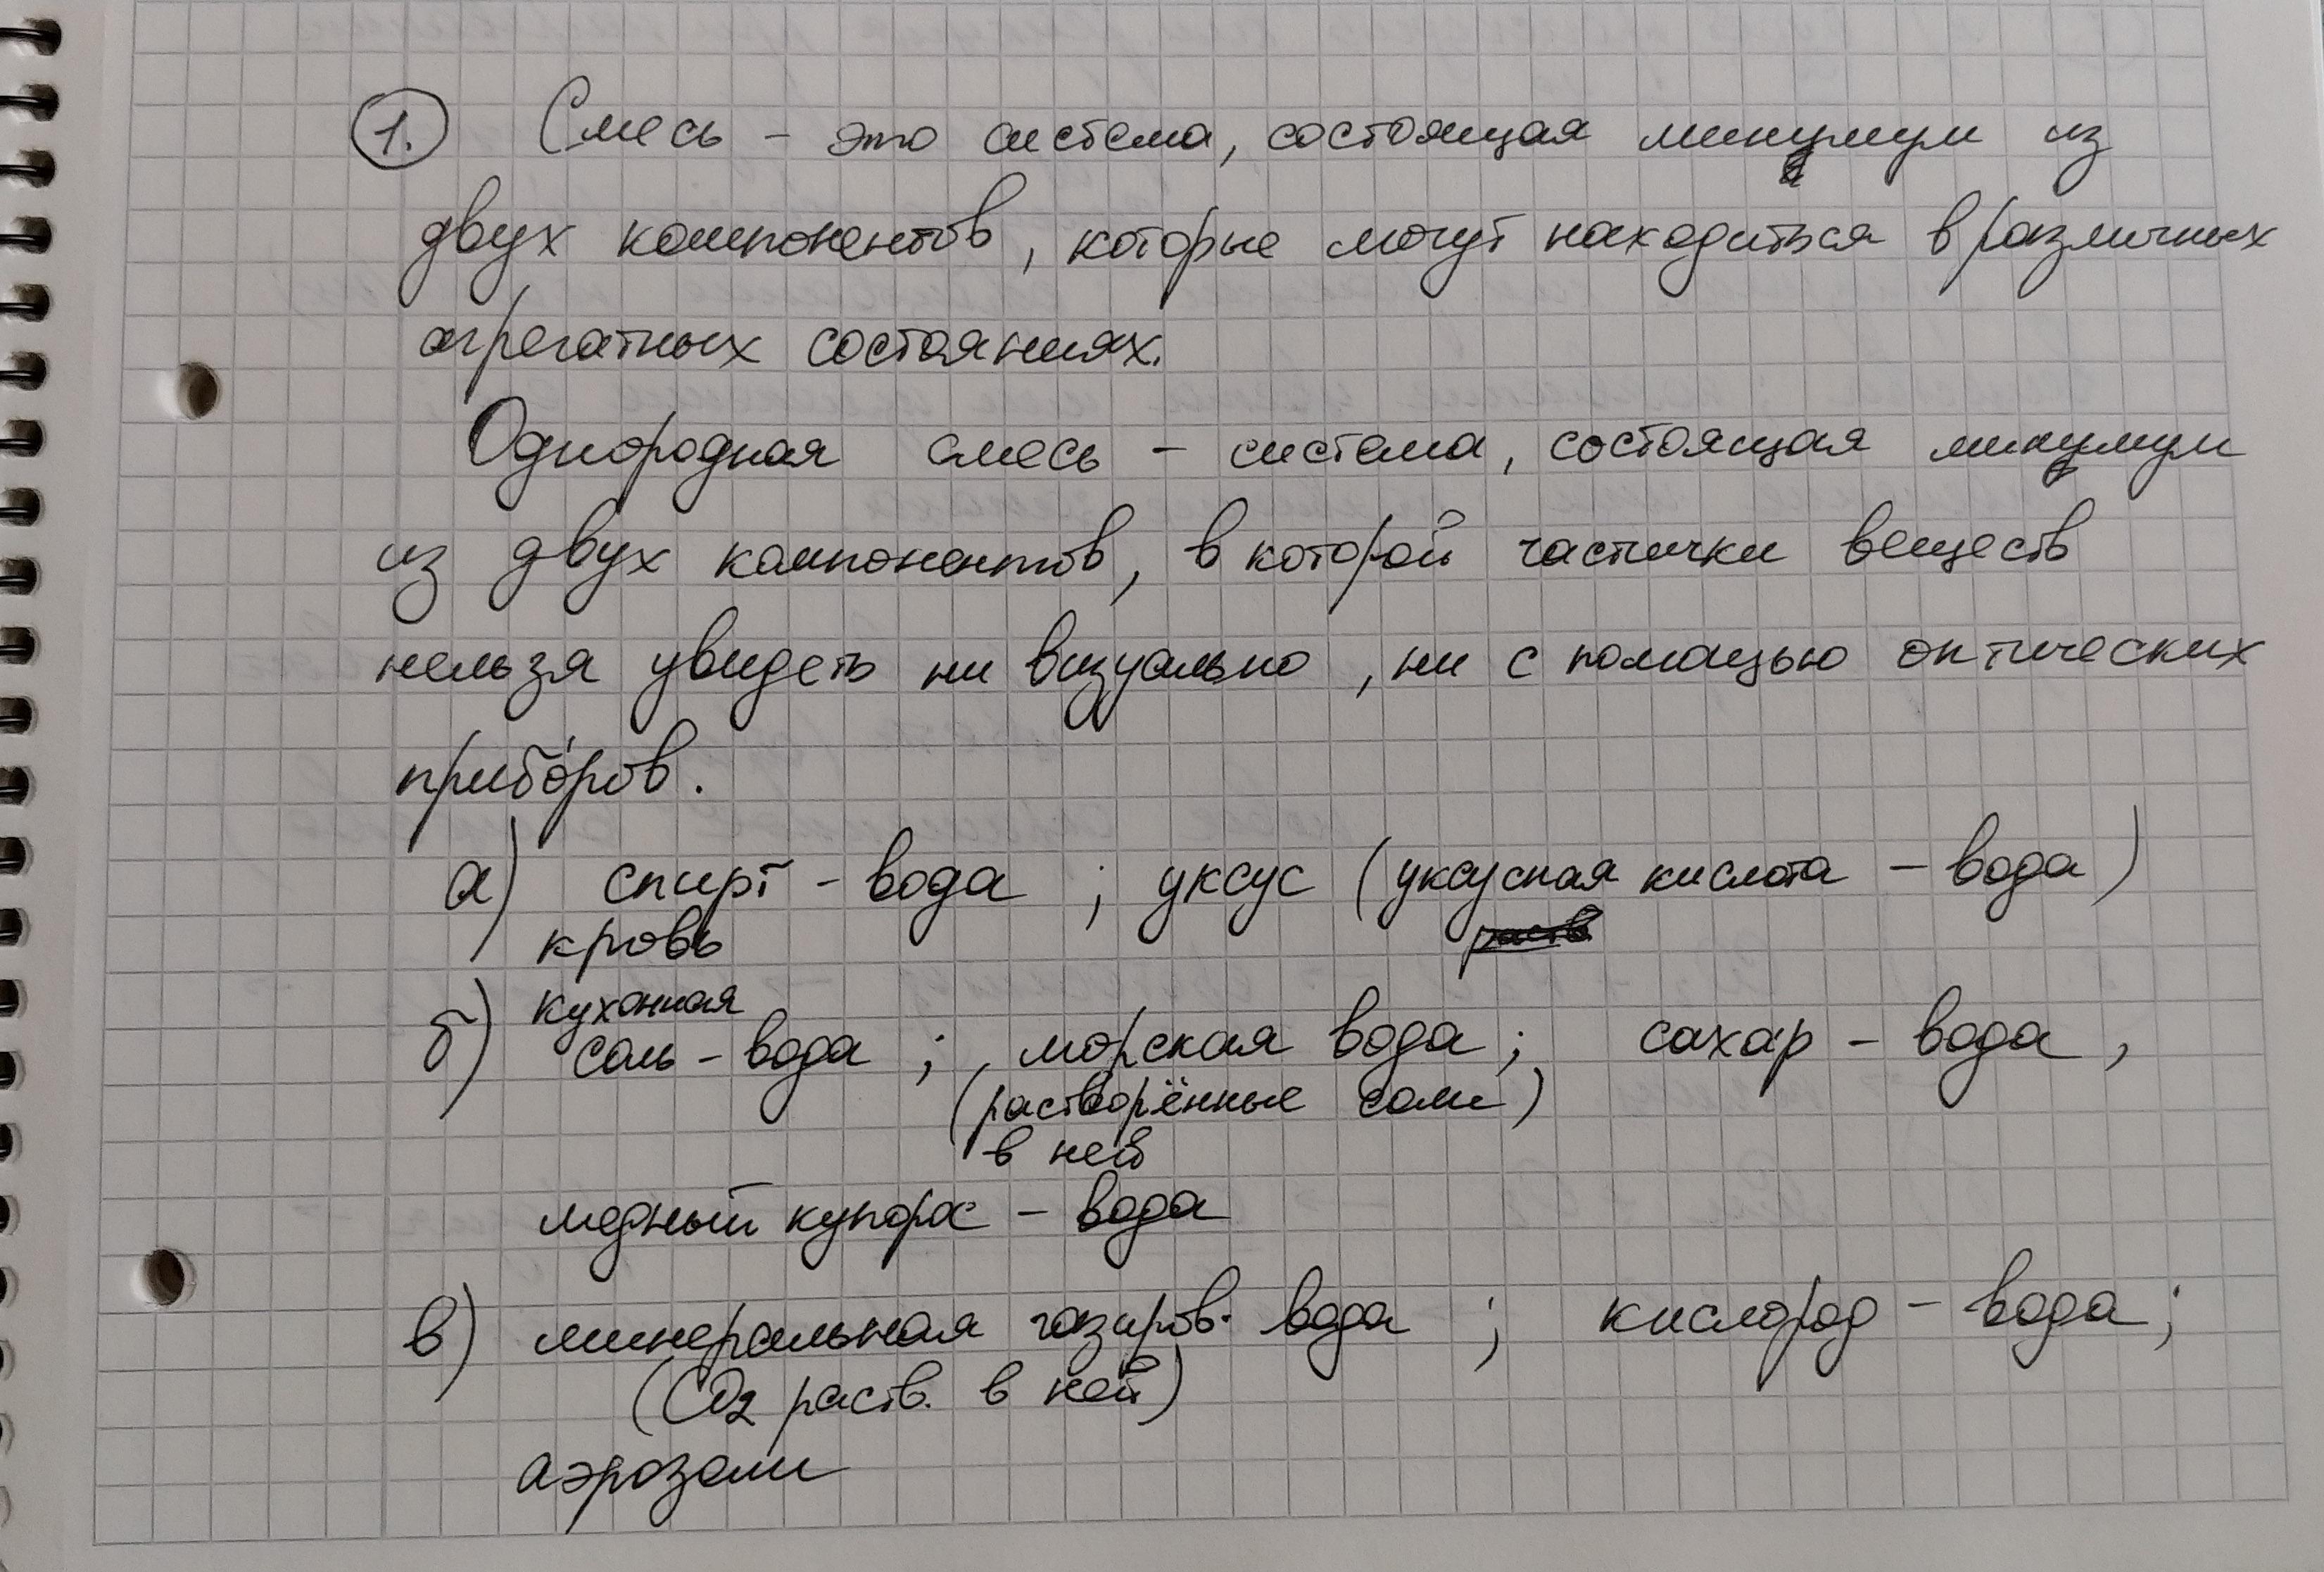 1. Смесь - это система, состоящая минимум из
двух компонентов, которые могут находиться в различных
агрегатных состояниях.
Однородная смесь - система, состоящая минимум
из двух компонентов, в которой частички веществ
нельзя увидеть ни визуально, ни с помощью оптических
приборов.
а) спирт - вода ; уксус (уксусная кислота - вода)
кровь
кухонная
б) соль - вода ; морская вода ; сахар - вода ,
(растворённые соли)
в ней
медный купорос - вода
в) минеральная газиров. вода ; кислород - вода ;
(CO2 раств. в ней)
аэрозоли